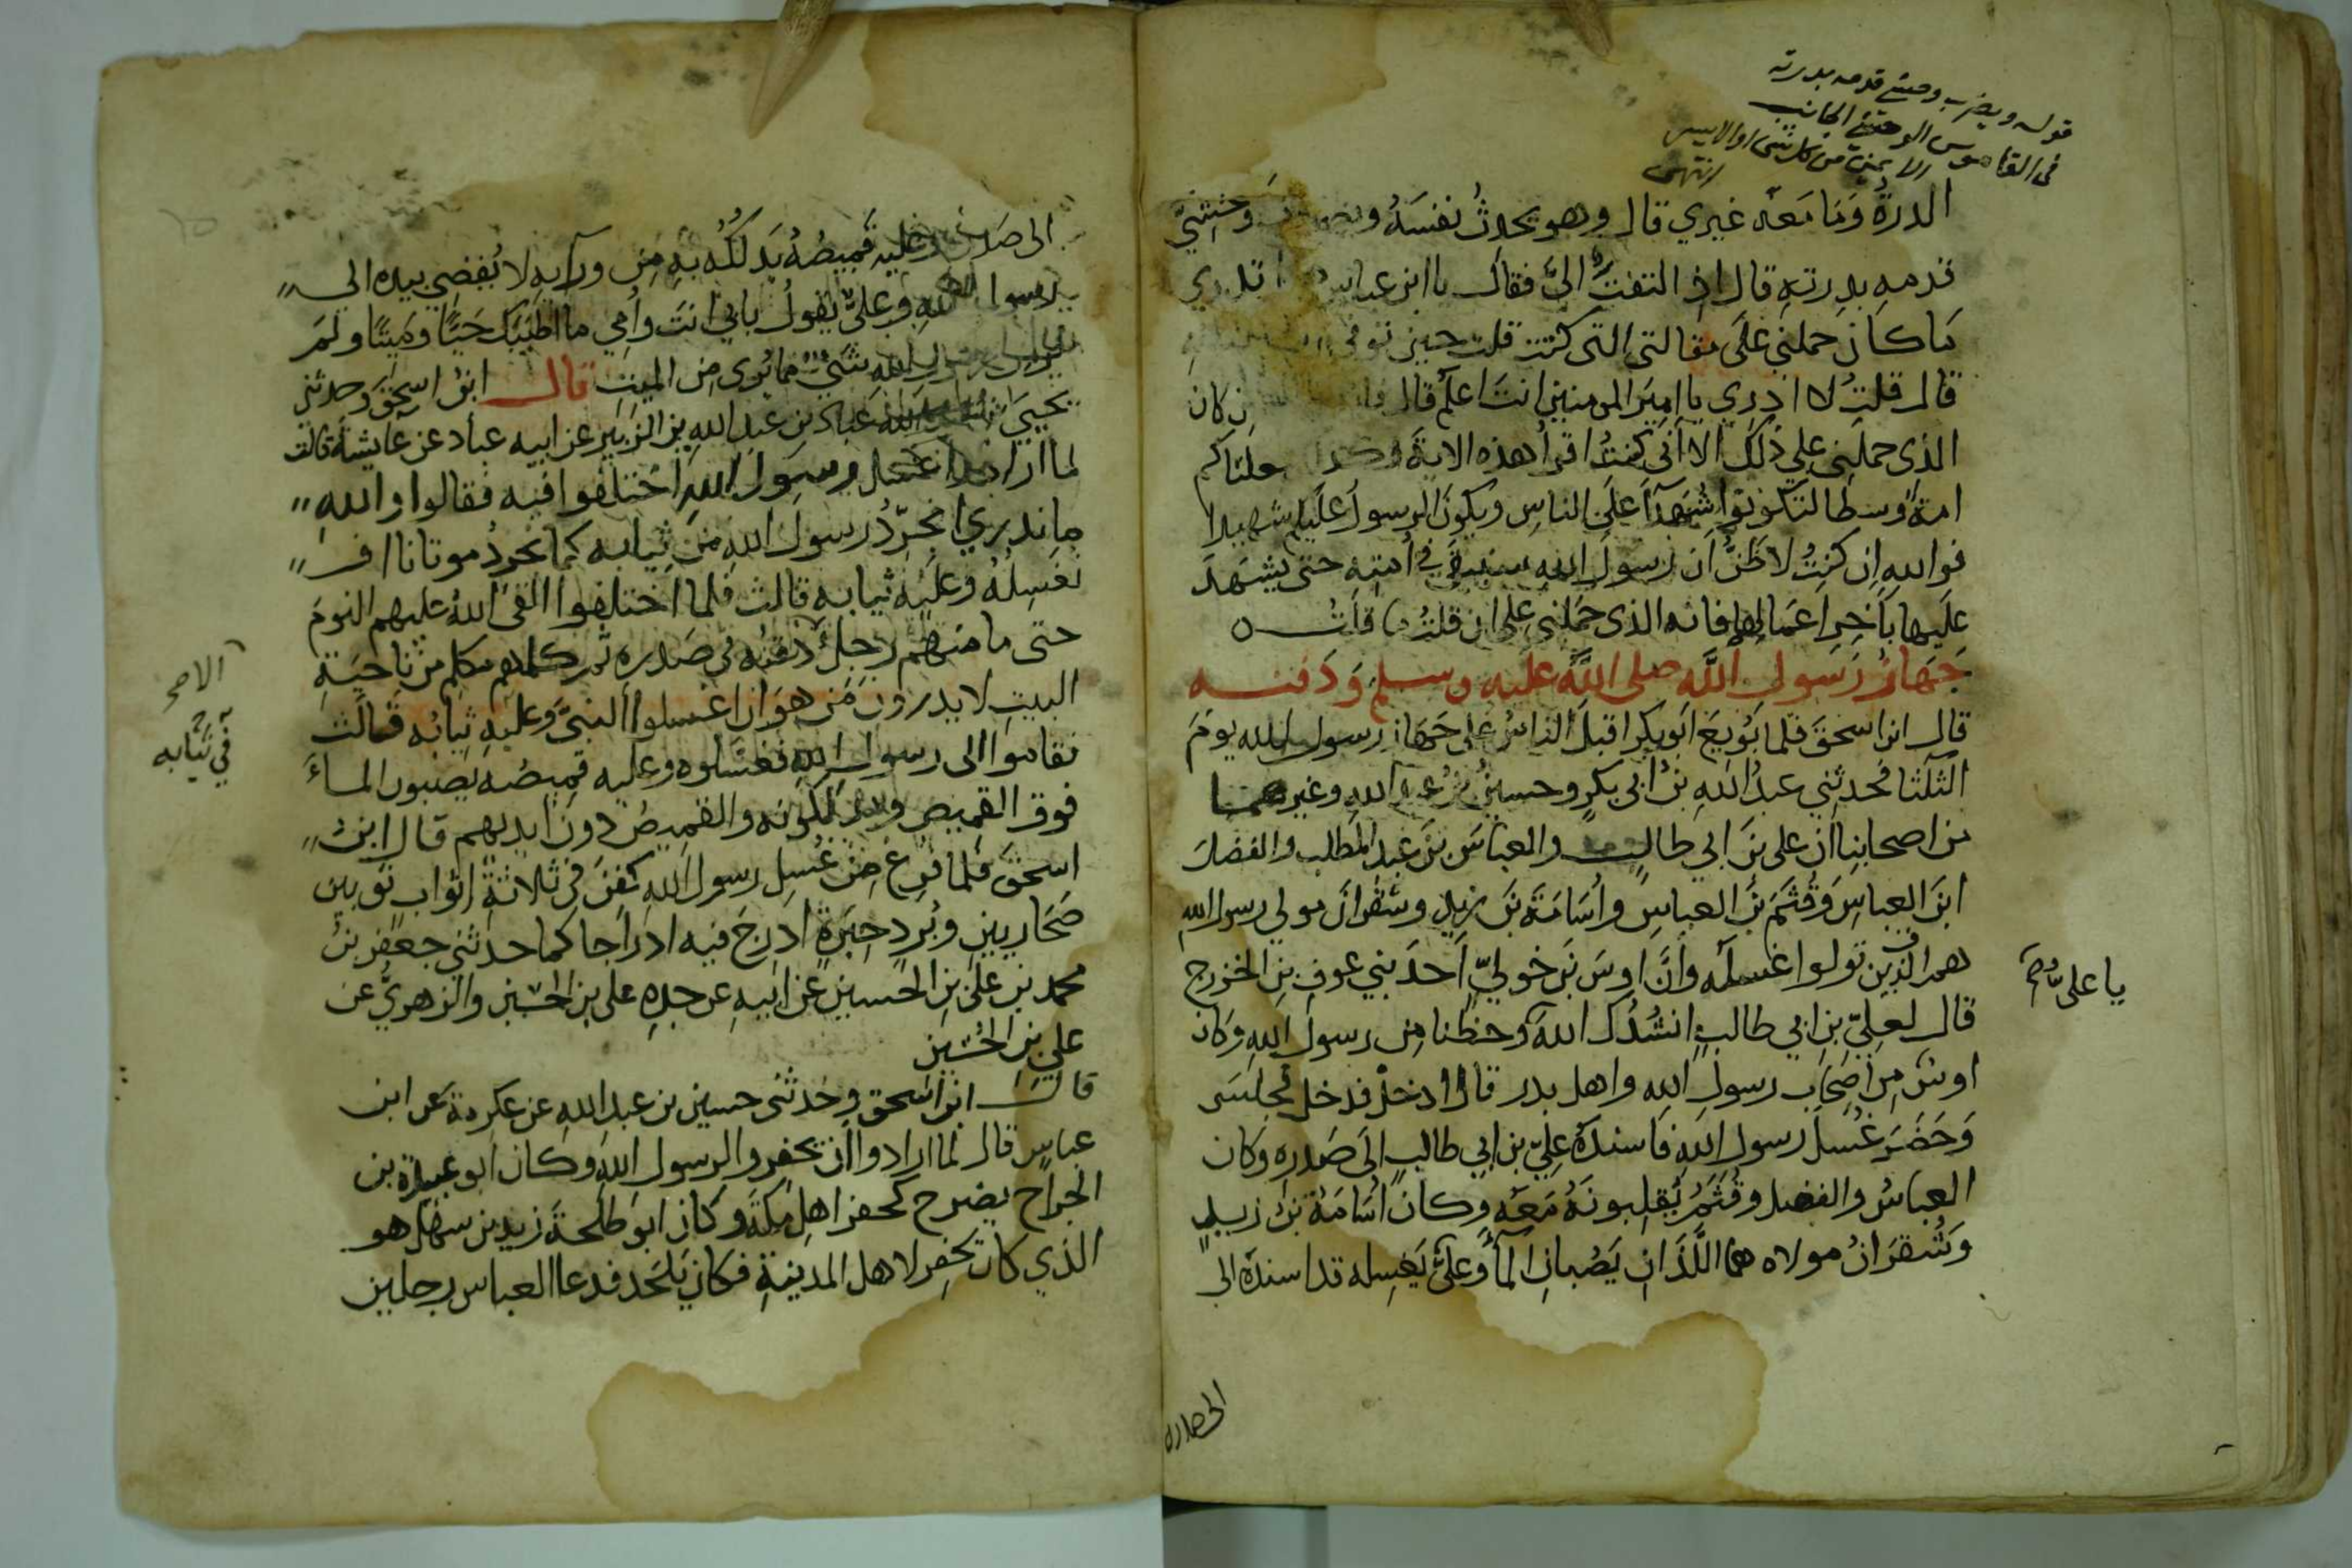 قوله ويضرب وحشي قدمه بدرته
في القاموس الوحشي الجانب
الايمن من كل شي او الايسر
انتهى
الدرةُ وَمَا مَعَه غيري قال وهو يحدثُ نفسَهُ وَحْشِيَّ
قدمهِ بدِرتهِ قال اذ التفتَ اليَّ فقال يا ابن عباس تدري
مَا كانَ حملني علَى مقالتي التي كنتُ قلت حين توفي
قال قلتُ لا ادري يا اميرَ المومنين انتَ اعلَم قال ان كانَ
الذى حملني على ذلكَ الا اني كنتُ اقرا هذه الاية جعلناكم
امةً وسطا لتكونوا شُهَدآ علَى الناسِ ويكونَ الرسولُ عليكم شهيدا
فوالله اِن كنتُ لاظنُّ ان رَسولَ الله سيبقَى في اُمتِهِ حتى يشهَدَ
علَيها بآخِرِ اعمَالِها فانه الذى حَمَلني على ان قلتُ ما قلتُ ه
جَهَازُ رَسولِ اللَّه صلى اللَّهُ عليه وسلم وَدَفنه
قال ابن اسحق فلما بُويعَ ابو بكر اقبلَ الناسُ على جَهَازِ رسولِ الله يومَ
الثلثا فحدثني عبدُ اللهِ بنُ ابى بكرٍ وحسينُ بنُ عبدِ اللهِ وغيرهما
من اصحابنا ان على بنَ ابي طالبٍ والعباسَ بنَ عبد المطلب والفضلَ
ابنَ العباسِ وَقُثَمَ بنَ العباسِ واُسَامَةَ بنَ زيدٍ وشقرانَ مولي رسول الله
هم الذين تولوا غسلَه واَنَّ اوسَ بنَ خوليّ اَحدَ بني عوفِ بنِ الخزرج
قال لعليِّ بنِ ابي طالبٍ انشُدُك اللهَ وحظنا مِن رسولِ اللهِ وَكانَ
يا على صح
اوسٌ مِن اَصحَاب رسولِ اللهِ واهل بدر قال ادخلْ فدخل فجلسَ
وَحَضَرَ غُسلَ رسولِ اللهِ فاسندَهُ عليّ بن ابي طالبٍ الَى صَدره وكان
العباسُ والفضل وقُثَمُ يُقلبونَهُ مَعَه وكان اُسَامَةُ بنُ زيدٍ
وَشُقرَانُ مولاه هما اللَّذَانِ يَصُبانِ المآ وَعلىٌّ يَغسِله قد اسندَهُ الى
الى صدره
الى صَدره وعليه قميصُهُ يَدلكُه بهِ مِن ورآيهِ لا يُفضي بيده الى
رسول اللهِ وعليٌّ يقولُ بابي انتَ واُمي ما اطيبَك حَيًّا ومَيتًا ولم
يُرَ من رسولِ الله شيٌ مما يُرى من الميتِ قال ابنُ اسحق وحدثني
يحيىَ بنُ عباد بن عبد اللهِ بنِ الزبَيرِ عن ابيه عباد عن عآيشةَ قالت
لما ارادوا غسل رسولِ اللهِ اختلفوا فيه فقالوا واللهِ
ما ندري انجرّدُ رسولَ اللهِ من ثيابه كما نجردُ موتانا اف
نغسِلُهُ وعليه ثيابه قالت فلما اختلفوا القى اللهُ عليهم النومَ
حتى ما منهم رَجلٌ ذقنُه في صَدره ثم كلمهم مكلم من ناحيةِ
الاصح
البيت لا يدرون مَن هوَ ان اغسلوا النبيَّ وعليهِ ثيابُه قالت
في ثيابه
فقاموا الى رسول الله فغسَلوه وعليه قميصُه يَصُبون الماءَ
فوق القميص ويدلكونه والقميصُ دونَ ايديهم قال ابنُ
اسحقَ فلما فُرِغَ مِن غُسلِ رسولِ اللهِ كُفِنَ في ثلاثةِ اثوابٍ ثوبين
صَحَاريين وبُردِ حِبَرةٍ ادرِجَ فيه ادراجا كما حدثني جعفر بنُ
محمد بن علىِّ بنِ الحسينِ عن ابيهِ عن جدهِ على بنِ الحسَين والزهوريُّ عن
علي بنِ الحُسَين
قالَ ابن اسحق وحَدثني حسين بن عبد اللهِ عن عكرمةَ عَن ابن
عباس قال لما ارادوا ان يحفروا لرسولِ اللهِ وكان ابو عبيدة بن
الجراح يضرح كحفر اهلِ مكة وكان ابو طلحةَ زيد بن سَهل هو
الذي كان يحفِر لاهل المدينةِ فكان يَلحَد فدعا العباس رجلين